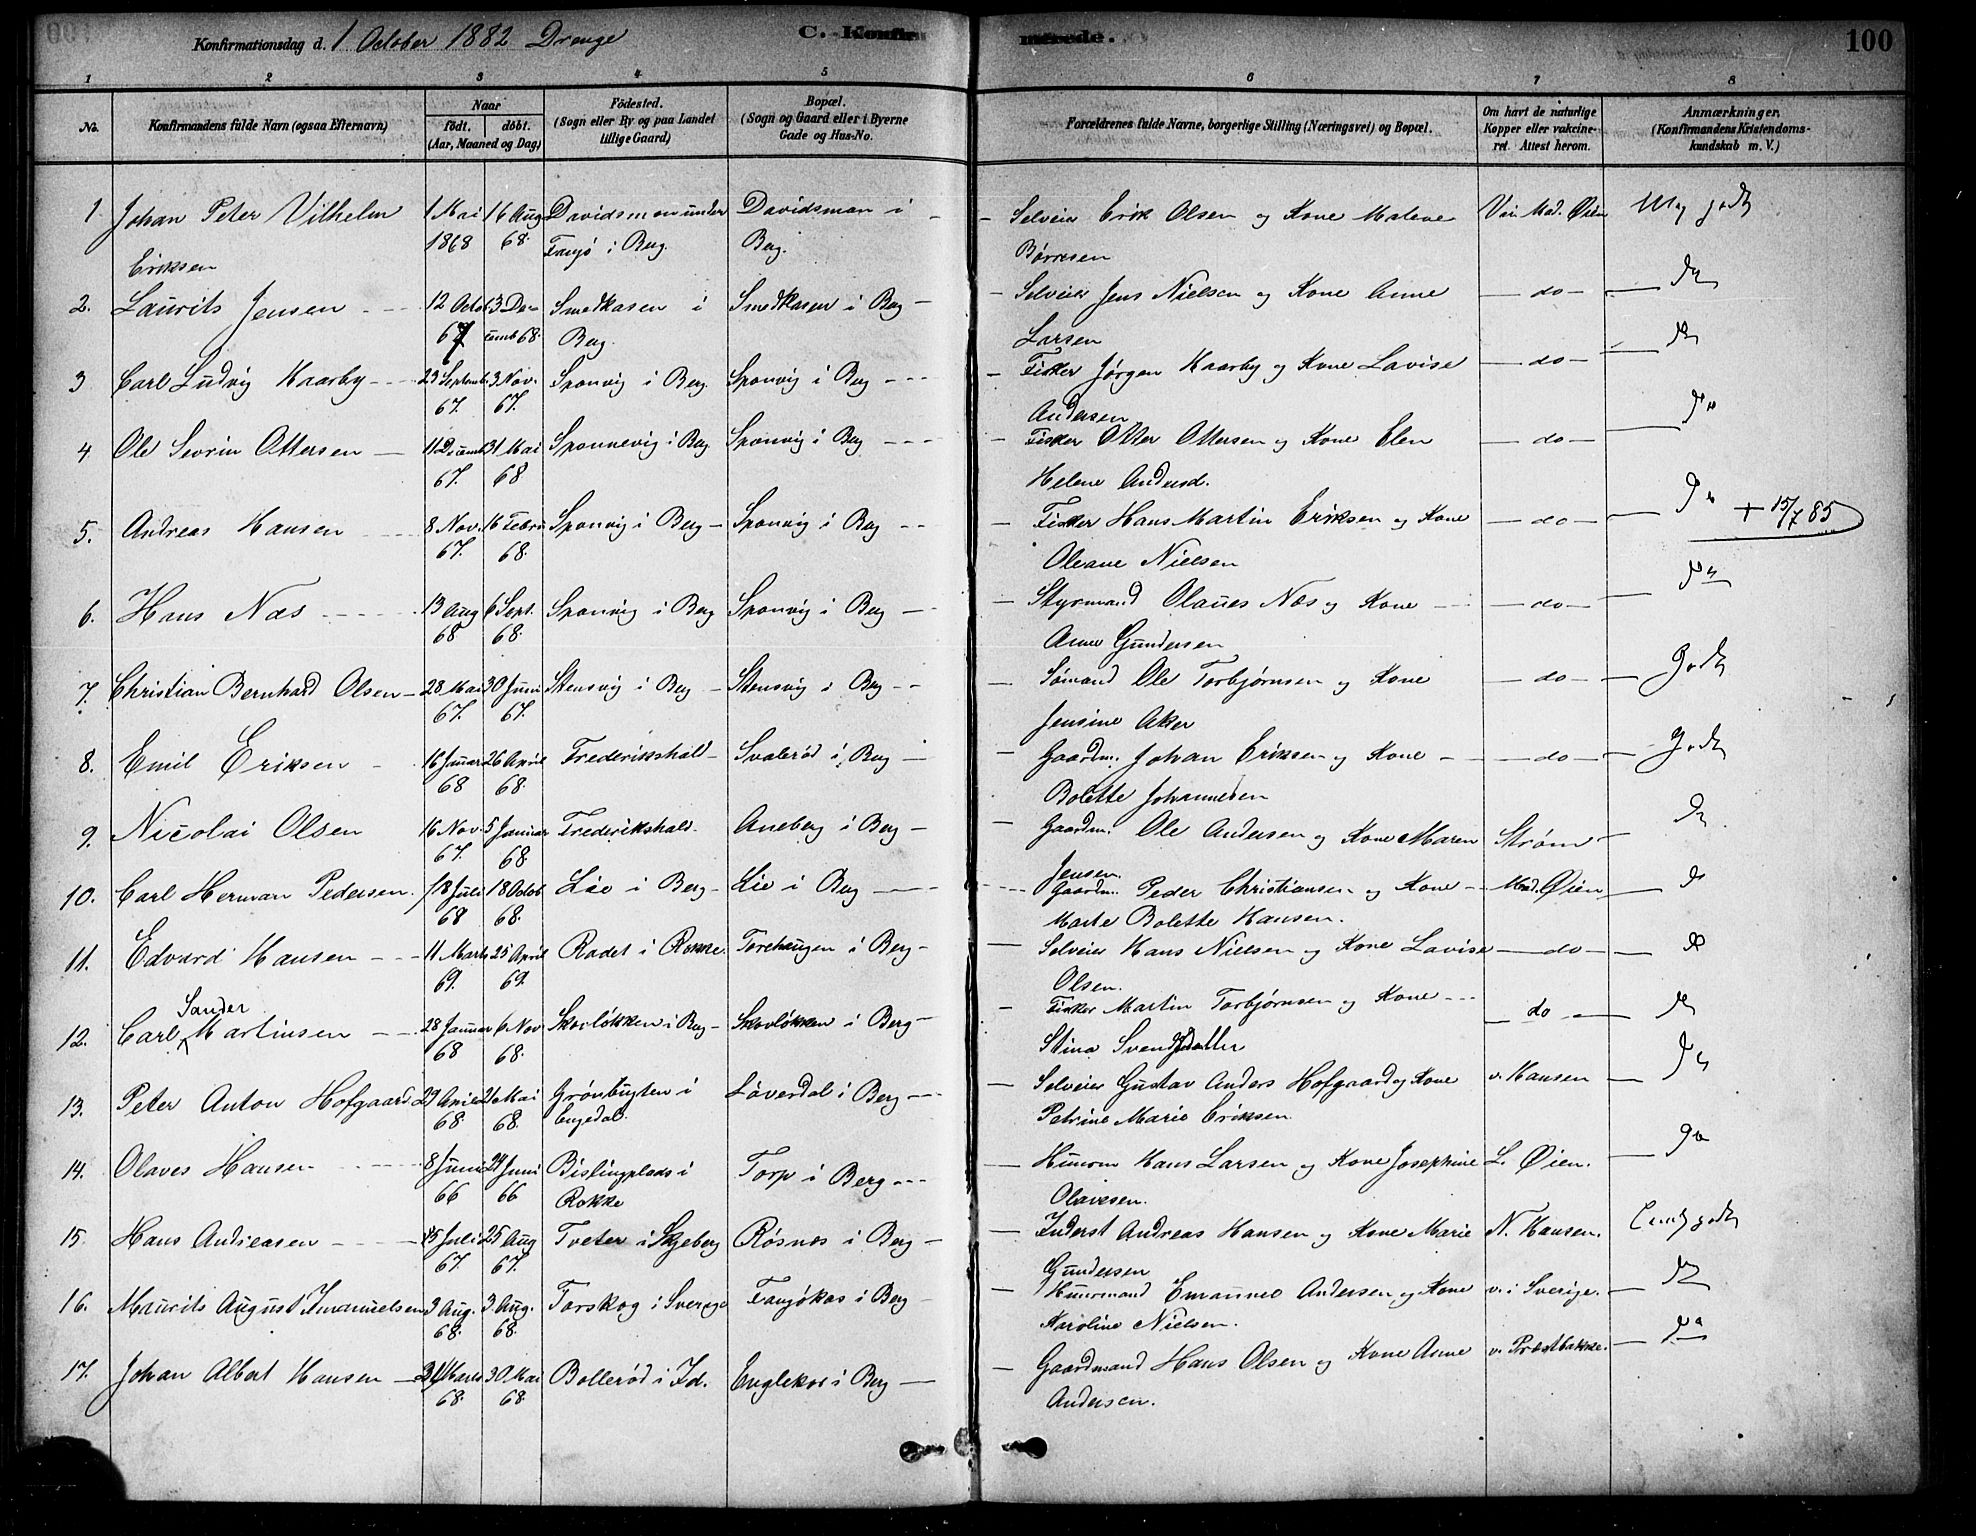 Konfirmationsdag d. 1 October 1882 Drenge C. Konfirmerede. 100
1 2 3 4 5 6 7 8
No. Konfirmandens fulde Navn (ogsaa Efternavn) Naar födt. döbt. (Aar, Maaned og Dag) Födested. (Sogn eller By og paa Landet tillige Gaard) Bopæl. (Sogn og Gaard eller i Byerne Gade og Hus-No. Forældrenes fulde Navne, borgerlige Stilling (Næringsvei) og Bopæl. Om havt de naturlige Kopper eller vakcineret. Attest herom. Anmærkninger. (Konfirmandens Kristendomskundskab m. V.)
1. Johan Peter Vilhelm 1 Mai 16 Aug Davidsmon under Davidsmon i - Selveier Erik Olsen og Kone Malene Vac. Mad. Øien Meg godt
Eriksen 1868 68. Fangø i Berg. Berg. Børresen
2. Laurits Jensen 12 Octob 13 De- Smedkasen i Smedkasen i Berg - Selveier Jens Nielsen og Kone Anne - do - do
67 cemb 68. Berg. Larsen
3 Carl Ludvig Kaarby 23 Septemb. 3 Nov. Sponvig i Berg. Sponvig i Berg - Fisker Jørgen Kaarby og Kone Lovise - do - do
67. 67. Andersen
4. Ole Sevrin Ottersen 11 Decemb 31 Mai Sponnevig i Berg Sponvig i Berg - Fisker Otter Ottersen og Kone Elen - do - do
67. 68 Helene Andersd.
5. Andreas Hansen 8 Nov. 16 Febru Sponvig i Berg - Sponvig i Berg - Fisker Hans Martin Eriksen og Kone - do - do + 15/7 85
67. 68. Oleane Nielsen
6. Hans Næs 13 Aug 6 Sept. Sponvig i Berg Sponvig i Berg - Styrmand Olaues Næs og Kone - do - do
68 68. Anne Gundersen
7. Christian Bernhard Olsen - 28 Mai 30 Juni Stensvig i Berg - Stensvig i Berg - Sømand Ole Torbjørnsen og Kone - do - Godt
67. 67. Jensine Aker
8. Emil Eriksen - 16 Januar 26 April Frederikshald - Svalerød i Berg - Gaardm. Johan Eriksen og Kone - do - Godt
68 68. Bolette Johannesen
9. Nicolai Olsen 16 Nov. 5 Januar Frederikshald. Aneberg i Berg - Gaardm. Ole Andersen og Kone Maren Strøm - do
67. 68. Jensen.
10. Carl Herman Pedersen. 18 Juli 18 Octob Lie i Berg - Lie i Berg - Gaardm. Peder Christiansen og Kone - Mad. Øien - do
68 68. Marte Bolette Hansen.
11. Edvard Hansen 11 Marts 25 April Rødet i Rokke. Torehaugen i Berg - Selveier Hans Nielsen og Kone Lovise - do - do
69. 69. Olsen.
12. Carl Sander Martinsen 28 Januar 6 Nov Skovløkken i Berg - Skovløkken i Berg - Fisker Martin Torbjørnsen og Kone - do - do
68 68. Stina Svendsdatter
13. Peter Anton Hofgaard 29 April 21 Mai Grønbugten i Løverdal i Berg - Selveier Gustav Anders Hofgaard og Kone v. Hansen - do
68. 68. Engedal. Petrine Marie Eriksen.
14. Olaves Hansen 8 Juni 24 Juni Bislingplads i Torp i Berg - Huusm Hans Larsen og Kone Josephine L. Øien. - do
66 66 Rokke Olavesen.
15. Hans Andreasen 15 Juli 25 Aug Tveter i Skjeberg Røsnæs i Berg - Inderst Andreas Hansen og Kone Marie N. Hansen. godt
67. 67. Gundersen
16. Maurits August Imanuelsen 3 Aug. 3. Aug. Torskog i Sverige Fangøkas i Berg - Huusmand Emanuel Andersen og Kone v. i Sverige. - do
68. 68. Karoline Nielsen.
17. Johan Albert Hansen 21 Marts 30 Mai Bollerød i Id. Englekor i Berg - Gaardmand Hans Olsen og Kone Anne v. Præstbakke. - do
68. 68. Andersen.